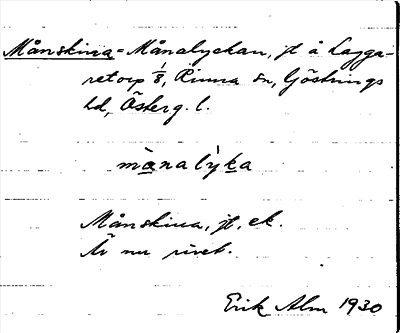 Månskina = Månalyckan, jt å Lagga-
retorp 1/8, Rinna sn, Göstrings
hd, Österg. l.
mànalỳka
Månskina, jt, ek.
Är nu rivet.
Erik Alm 1930